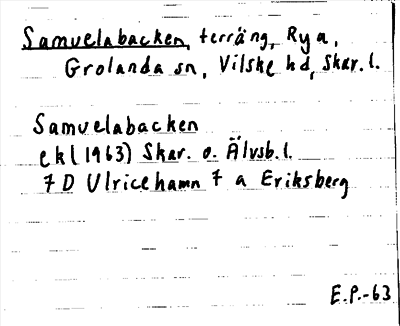 Samuelabacken, terräng, Rya,
Grolanda sn, Vilske hd, Skar. l.
Samuelabacken
ek (1963) Skar. o. Älvsb. l.
7 D Ulricehamn 7 a Eriksberg
E.P.-63